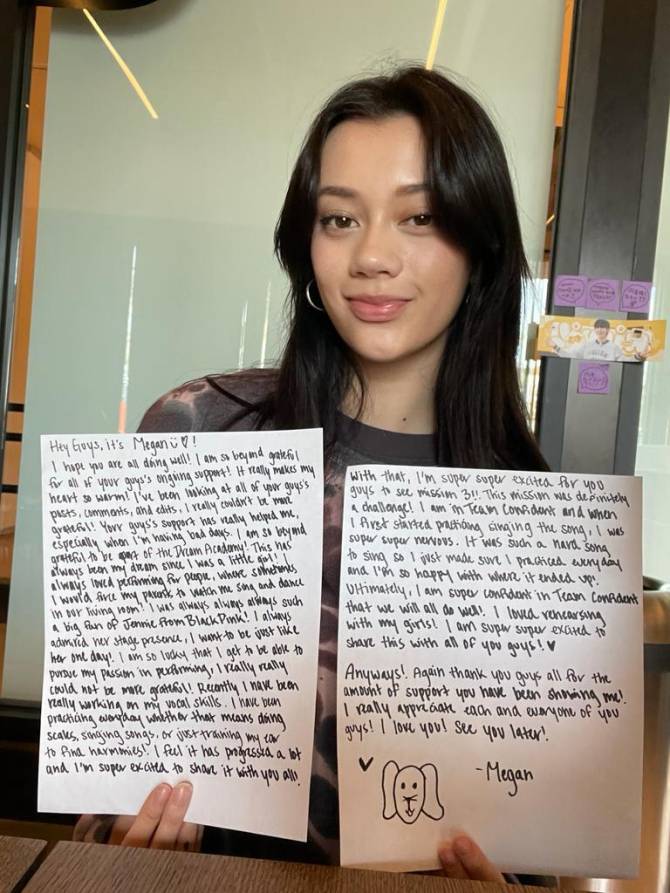 Hey Guys, it's Megan ü ♡ !
I hope you are all doing well! I am so beyond grateful
for all of your guys's ongoing support! It really makes my
heart so warm! I've been looking at all of your guys's
posts, comments, and edits, I really couldn't be more
grateful! Your guys's support has really helped me,
especially when I'm having bad days. I am so beyond
grateful to be apart of the Dream Academy! This has
always been my dream since I was a little girl! I
always loved performing for people, where sometimes
I would force my parents to watch me song and dance
in our living room! I was always always always such
a big fan of Jennie from BlackPink! I always
admired her stage presence, I want to be just like
her one day! I am so lucky that I get to be able to
pursue my passion in performing, I really really
could not be more grateful! Recently I have been
really working on my vocal skills. I have been
practicing everyday whether that means doing
scales, singing songs, or just training my ear
to find harmonies! I feel it has progressed a lot
and I'm super excited to share it with you all!
With that, I'm super super excited for you
guys to see mission 3!! This mission was definitely
a challenge! I am in Team Confident and when
I first started practicing singing the song, I was
super super nervous. It was such a hard song
to sing so I just made sure I practiced everyday
and I'm so happy with where it ended up.
Ultimately, I am super confident in Team Confident
that we will all do well! I loved rehearsing
with my girls! I am super super excited to
share this with all of you guys! ♥
Anyways! Again thank you guys all for the
amount of support you have been showing me!
I really appreciate each and everyone of you
guys! I love you! See you later!
-Megan